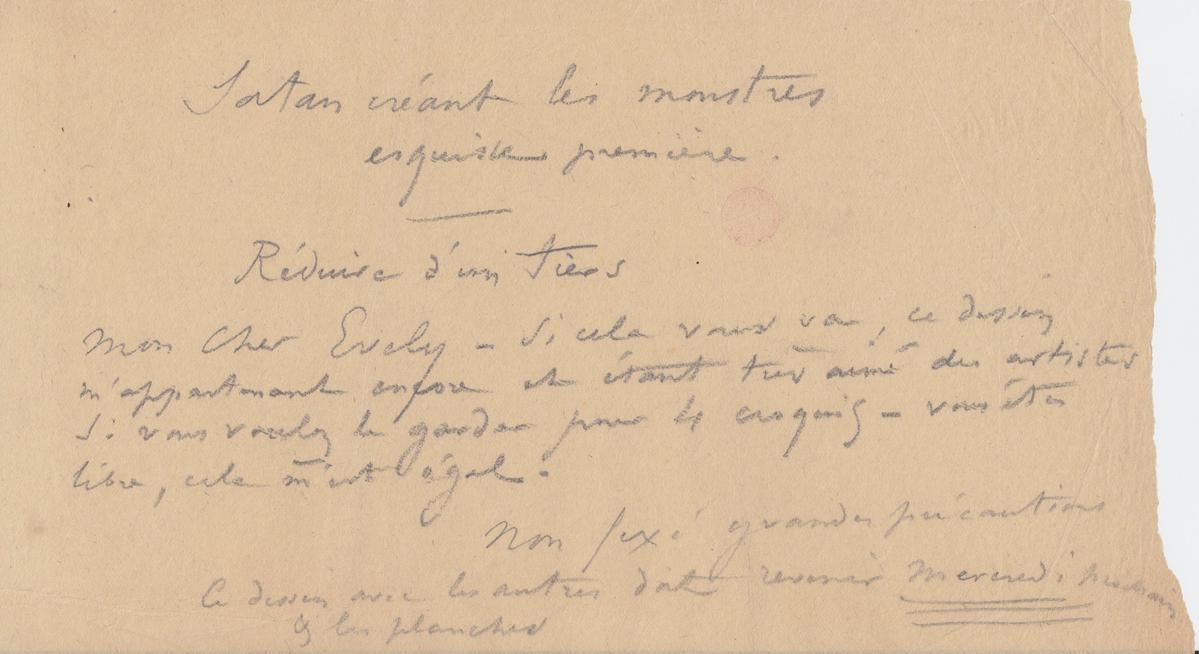 Satan créant les monstres
esquisse première.
Réduire d'un Tiers
Mon Cher Evely - Si cela vous va, ce dessin
m'appartenant encore et étant très aimé des artistes
Si vous voulez le garder pour 4 croquis - vous êtes
libre, cela m'est égal.
Non fixé grandes précautions
Ce dessin avec les autres doit revenir Mercredi prochain
& les planches